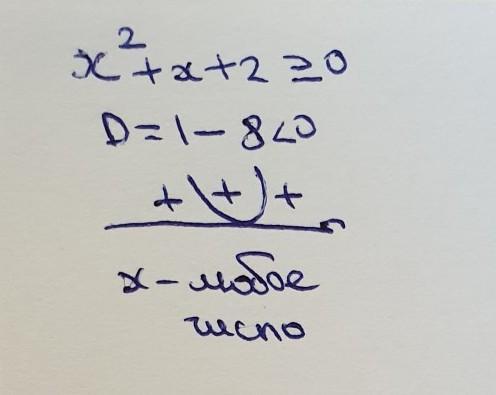 x² + x + 2 ≥ 0
D = 1 - 8 < 0
+ + +
x - любое
число